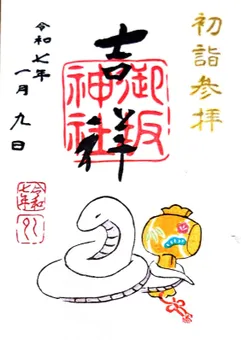 初詣参拝
吉祥
御坂神社
令和七年
一月九日
令和
七年